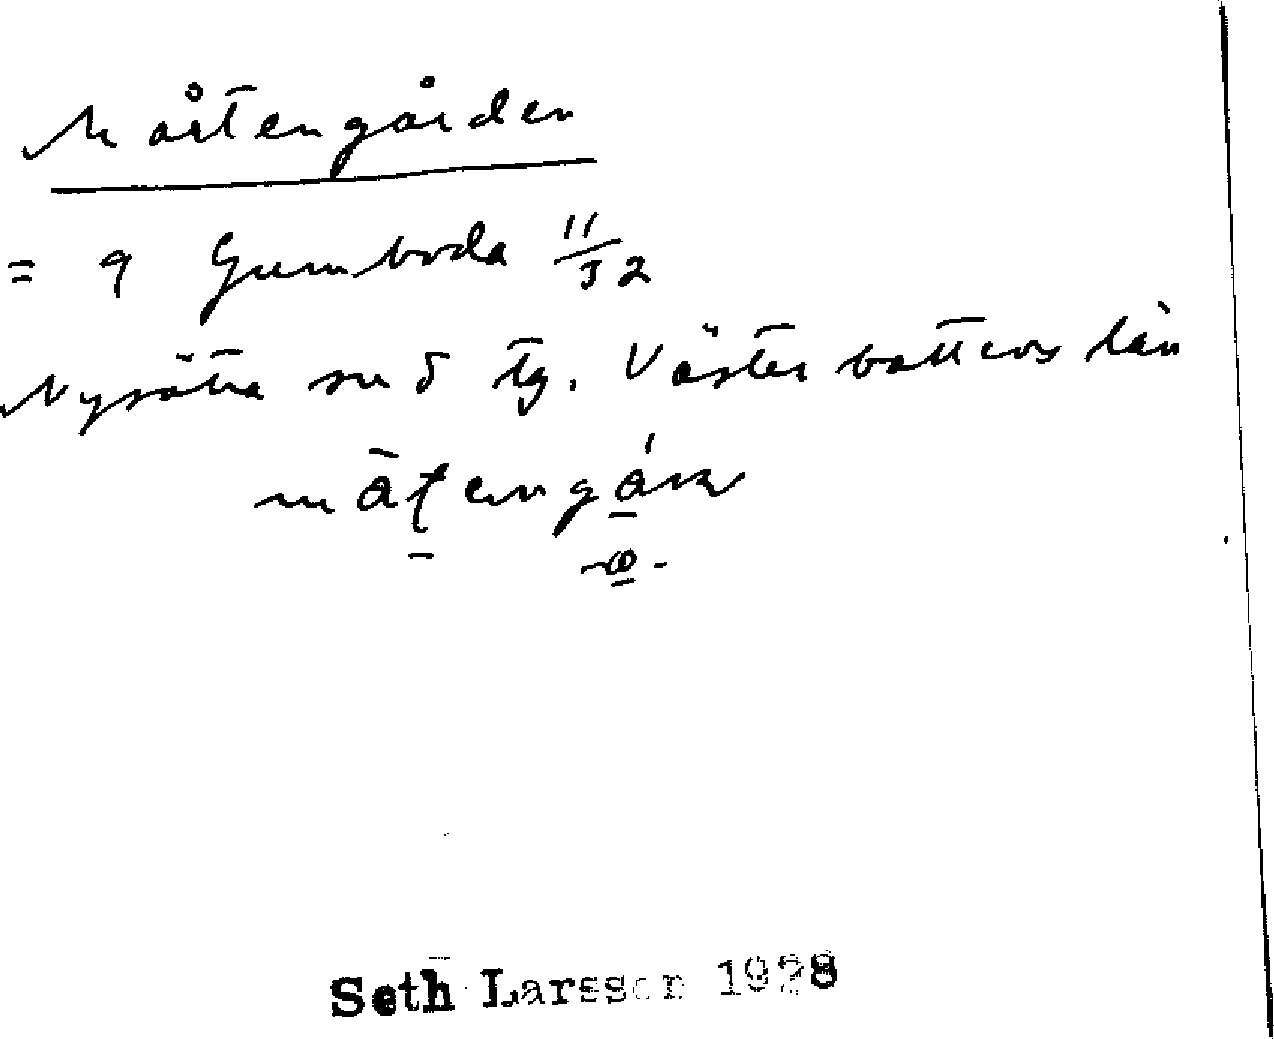 Mårtengården
= 9 Gumboda 11/32
Nysätra sn o tg. Västerbottens län
Seth Larsson 1928